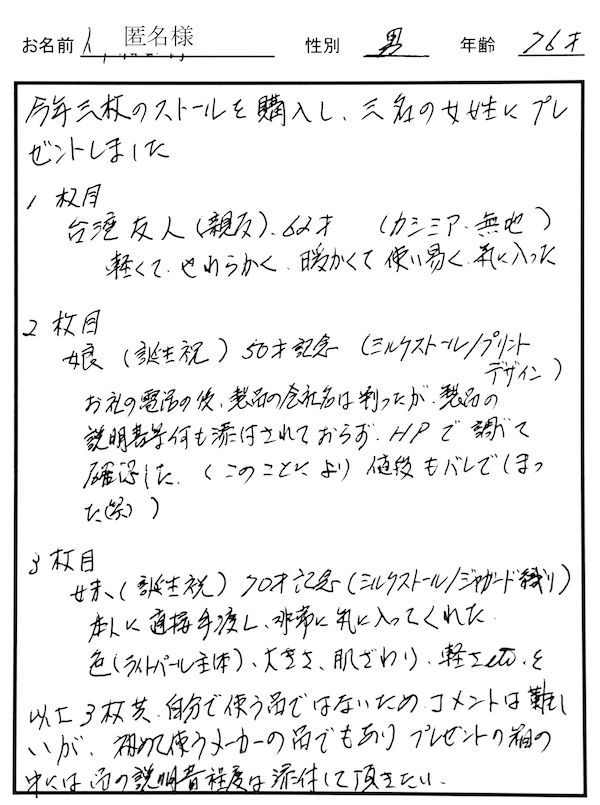 お名前 匿名様 性別 男 年齢 76才
今年三枚のストールを購入し、三名の女性にプレ
ゼントしました
1 枚目
台湾友人(親友)、62才 (カシミア・無地)
軽くて、やわらかく、暖かくて使い易く、気に入った
2 枚目
娘 (誕生祝) 50才記念 (ミルクストール/プリント
デザイン)
お礼の電話の後、製品の会社名は判ったが、製品の
説明書等何も添付されておらず、HPで調べて
確認した。(このことにより値段もバレてしまっ
た(笑))
3 枚目
妹、(誕生祝) 70才記念(ミルクストール/ジャガード織り)
本人に直接手渡し、非常に気に入ってくれた
色(ライトパール主体)、大きさ、肌ざわり、軽さetc.を
以上3枚共、自分で使う品ではないためコメントは難し
いが、初めて使うメーカーの品でもありプレゼントの箱の
中には品の説明書程度は添付して頂きたい。